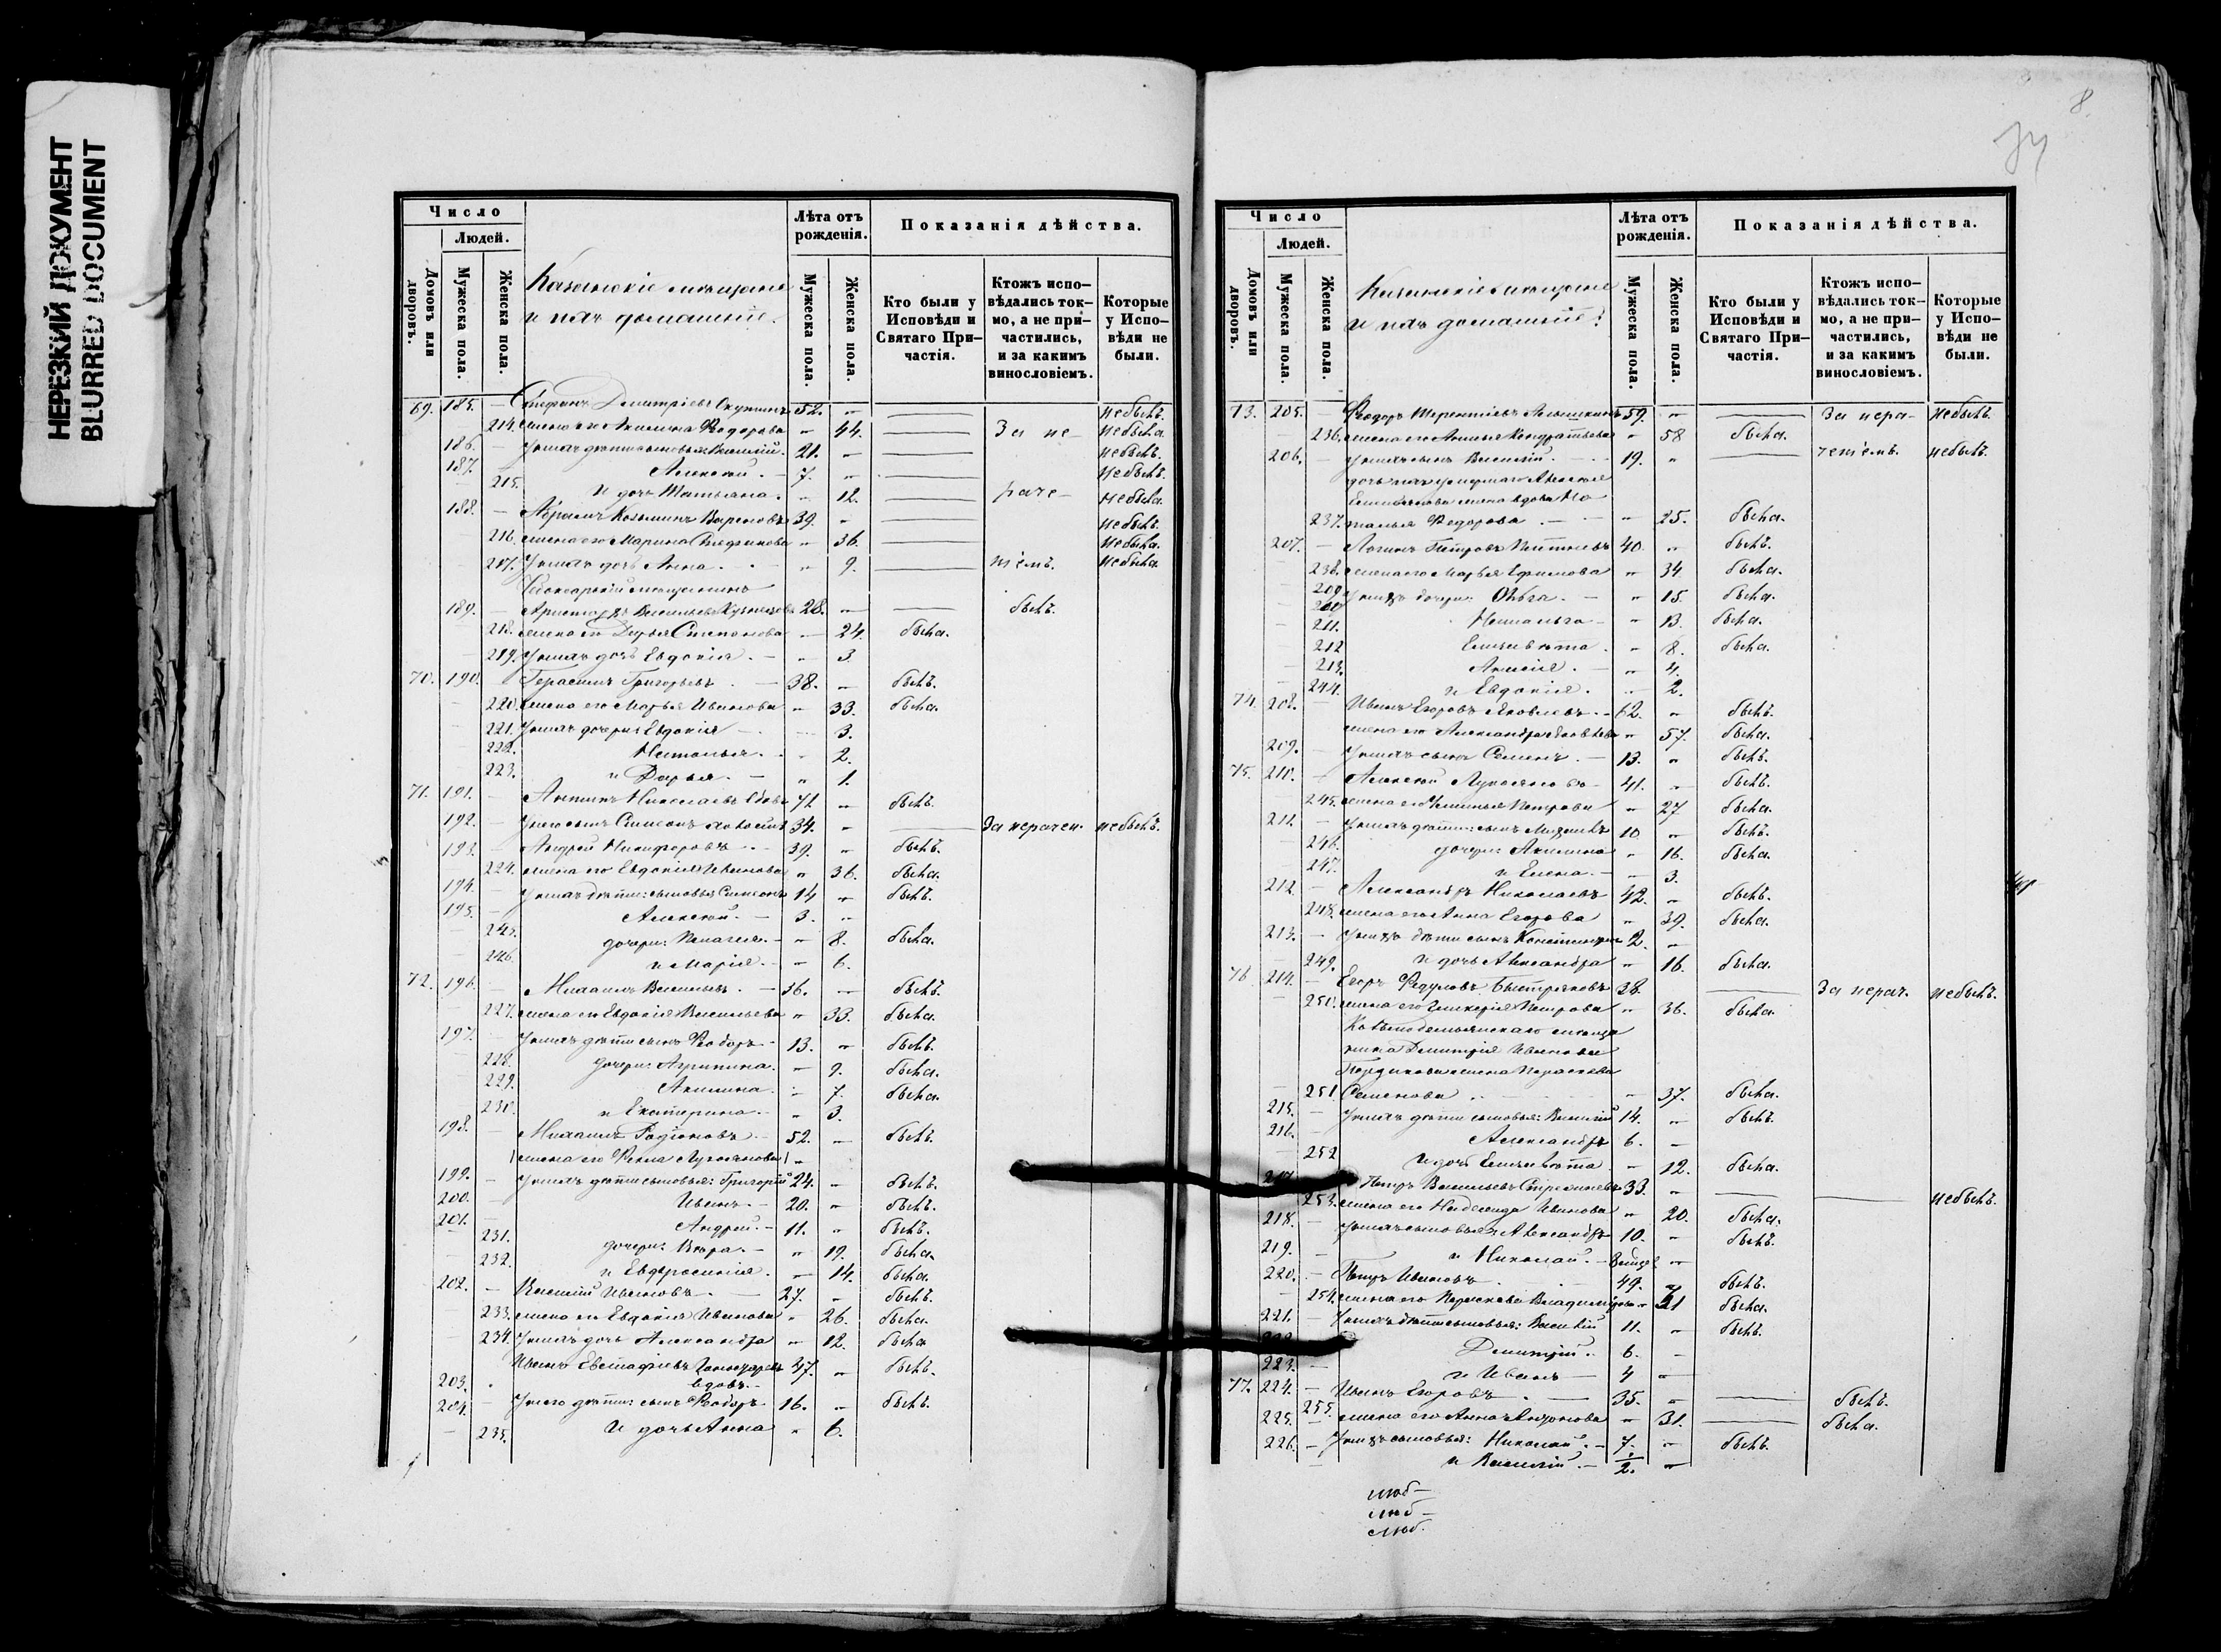 НЕРЕЗКИЙ ДОКУМЕНТ
BLURRED DOCUMENT
Число
Людей.
Домовъ или дворовъ.
Мужеска пола.
Женска пола.
Казанскіе мѣщане
и ихъ домашніе.
Лѣта отъ рожденія.
Мужеска пола.
Женска пола.
Показанія дѣйства.
Кто были у Исповѣди и Святаго При-частія.
Ктожъ испо-вѣдались ток-мо, а не при-частились, и за какимъ винословіемъ.
Которые у Испо-вѣди не были.
69. 185. — Стефанъ Димитріевъ 52. " небылъ.
214. жена его Акилина Ѳедорова " 44. За не- небыла.
186. — У нихъ дѣти сыновья: Василій. 21. " небылъ.
187. — Алексѣй. — 7. " небылъ.
215. и дочь Татьяна. " 12. раче- небыла.
188. — Абрамъ Козьминъ 39. " небылъ.
216. жена его Марина " 36. небыла.
217. У нихъ дочь Анна. " 9. ніемъ. небыла.
Чебоксарскій мѣщанинъ
189. — Васильевъ Кузнецовъ 28. " былъ.
218. жена его Дарья Степанова — 24. была.
219. У нихъ дочь Евдокія. — " 3.
70. 190. Герасимъ Григорьевъ. — 38. " былъ.
220. жена его Марья Иванова " 33. была.
221. У нихъ дочери: Евдокія — 3.
222. Наталья. " 2.
223. и Дарья. — " 1.
71. 191. — Антипъ Николаевъ 71 " былъ.
192. — У него сынъ Симеонъ холостъ 34. " За нерачен. небылъ.
193. — Андрей Никифоровъ. 39. " былъ.
224. жена его Евдокія Иванова " 36. была.
194. — У нихъ дѣти: сыновья Симеонъ 14 " былъ.
195. — Алексѣй. — 3. "
245. дочери: Пелагея. — " 8. была.
246. и Марія. — " 6.
72. 196. — Михаилъ Васильевъ. — 36. " былъ.
227. жена его Евдокія Васильева " 33. была.
197. — У нихъ дѣти сынъ Ѳедоръ — 13. " былъ.
228. дочери: Агрипина. — 9. была.
229. Акилина. — 7. была.
230. и Екатерина. — " 3.
198. — Михаилъ Родіоновъ. — 52. — былъ.
жена его Ѳекла Лукьянова "
199. — У нихъ дѣти сыновья: Григорій 24. " былъ.
200. — Иванъ. — 20. " былъ.
201. — Андрей. — 11. " былъ.
231. дочери: Вѣра. — " 19. была.
232. и Евфросинія. — 14. была.
202. — Василій Ивановъ. — 27. " былъ.
233. жена его Евдокія Иванова " 26. была.
234. У нихъ дочь Александра " 12. была
203. Иванъ Евстафіевъ 47. " былъ.
вдовъ. —
204. — У него дѣти: сынъ Ѳедоръ 16. " былъ.
235. и дочь Анна " 6.
8.
Число
Людей.
Домовъ или дворовъ.
Мужеска пола.
Женска пола.
Казанскіе мѣщане
и ихъ домашніе:
Лѣта отъ рожденія.
Мужеска пола.
Женска пола.
Показанія дѣйства.
Кто были у Исповѣди и Святаго При-частія.
Ктожъ испо-вѣдались ток-мо, а не при-частились, и за какимъ винословіемъ.
Которые у Испо-вѣди не были.
73. 205. — Ѳедоръ Терентіевъ 59. " За нера- небылъ.
236. жена его Кондратьева " 58 была.
206. — У нихъ сынъ Василій. 19. " ченіемъ. небылъ.
Алексѣя
жена вдова На-
237. талья Ѳедорова. — " 25. была.
207. — Логинъ Петровъ 40 " былъ.
238. жена его Марья Ефимова " 34. была.
209 У нихъ дочери: Ольга. — " 15. была.
211. Наталья — " 13. была.
212 Елизавета. " 8. была.
213. — " 4.
244. и Евдокія. " 2.
74. 208. — Иванъ Егоровъ Яковлевъ. — 62. " былъ.
жена его Александра Яковлева " 57. была.
209. — У нихъ сынъ Семенъ. — 13. " былъ.
75. 210. — Алексѣй Лукьяновъ — 41. " былъ.
245. жена его Петрова " 27 была.
211. — У нихъ дѣти: сынъ 10 " былъ.
246. дочери: Акилина " 16. была.
247. и Елена. — " 3.
212. — Александръ Николаевъ 42. " былъ.
248. жена его Анна Егорова " 39. была.
213. — У нихъ дѣти сынъ Константинъ 2. "
249. и дочь Александра " 16. была.
76 214. — Егоръ 38. За нерач. небылъ.
251. жена его Гликерія Петрова " 36. была.
Козьмодемьянскаго мѣща
нина Димитрія Иванова
жена Параскева
251 Семенова " 37. была.
215. — У нихъ дѣти сыновья: Василій 14. " былъ.
216. — Александръ 6. —
252 и дочь Елизавета " 12. была.
217. Петръ Васильевъ 33. " небылъ.
253. жена его Надежда Иванова " 20. была.
218. — У нихъ сыновья: Александръ 10. " былъ.
219. — и Николай. —
220. — Петръ Ивановъ. 49. " былъ.
254. жена его Параскева Владимірова " 31 была.
221. — У нихъ дѣти сыновья: Василій 11. " былъ.
222 Димитрій. 6. —
223. — и Иванъ — 4 "
77. 224. — Иванъ Егоровъ. — 35. " былъ.
255. жена его Анна " 31. была.
225. — У нихъ сыновья: Николай. — 7. " былъ.
226. — и Василій. — 2. "